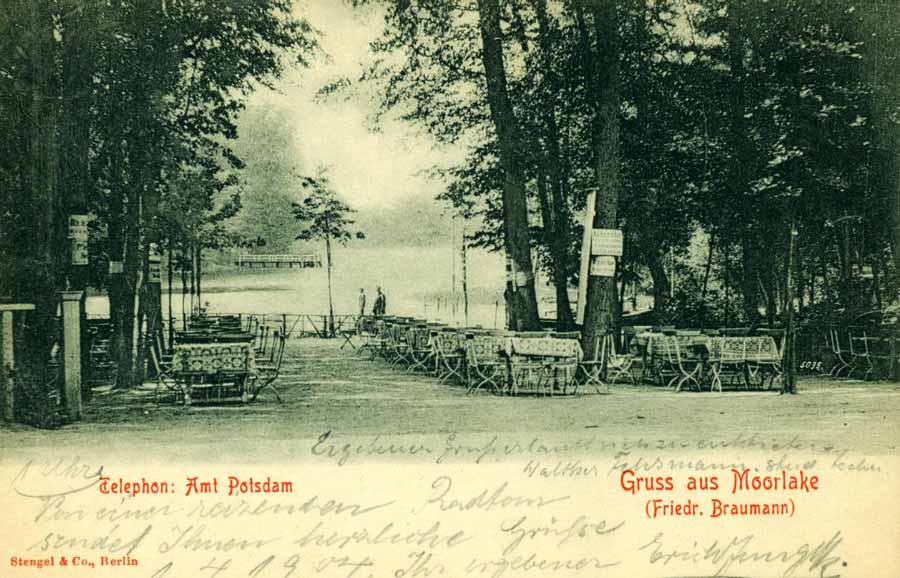 5035
Ergebener Gruß erlaubt sich zu entbieten
Walther Fehrsmann, stud. techn.
1 Uhr
Telephon: Amt Potsdam
Gruss aus Moorlake
(Friedr. Braumann)
Von einer reizenden Radtour
sendet Ihnen herzliche Grüße
Stengel & Co., Berlin
1 4 1904. Ihr ergebener Erich